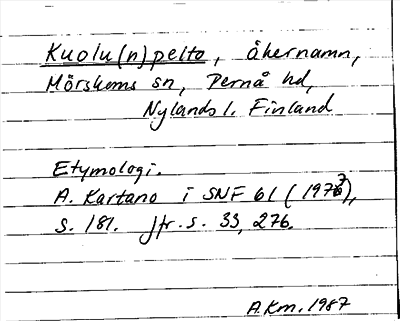 Kuolu(n)pelto, åkernamn,
Mörskoms sn, Pernå hd,
Nylands l. Finland
Etymologi.
A. Kartano i SNF 61 (1973),
s. 181. Jfr. s. 33, 276.
A.Km. 1987